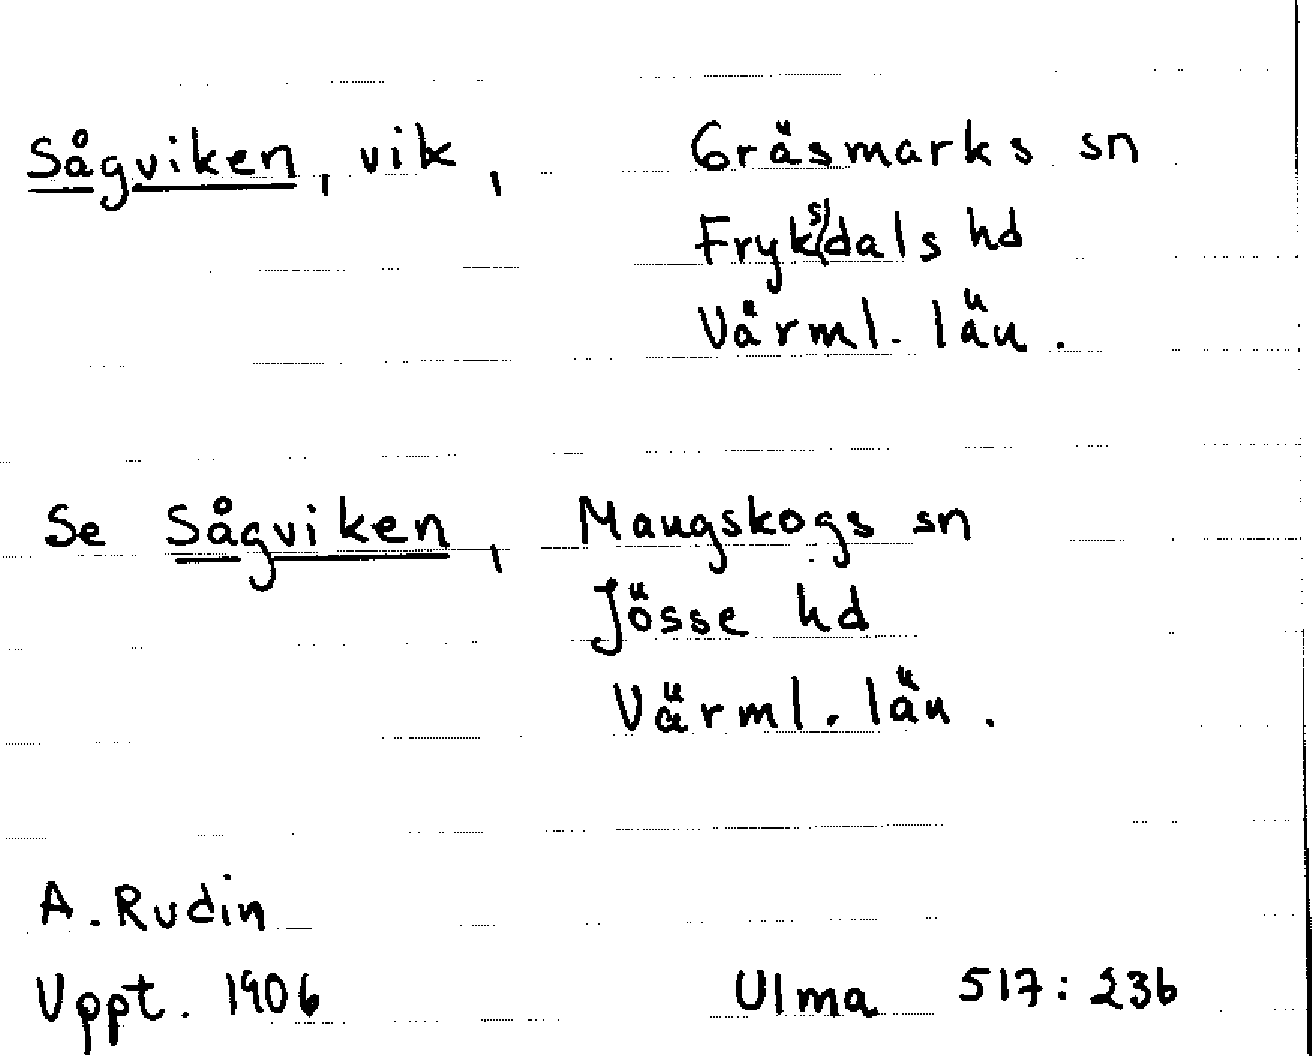 Sågviken, vik, Gräsmarks sn
Fryksdals hd
Värml. län.
Se Sågviken, Mangskogs sn
Jösse hd
Värml. län.
A. Rudin
Uppt. 1906 Ulma 517:236